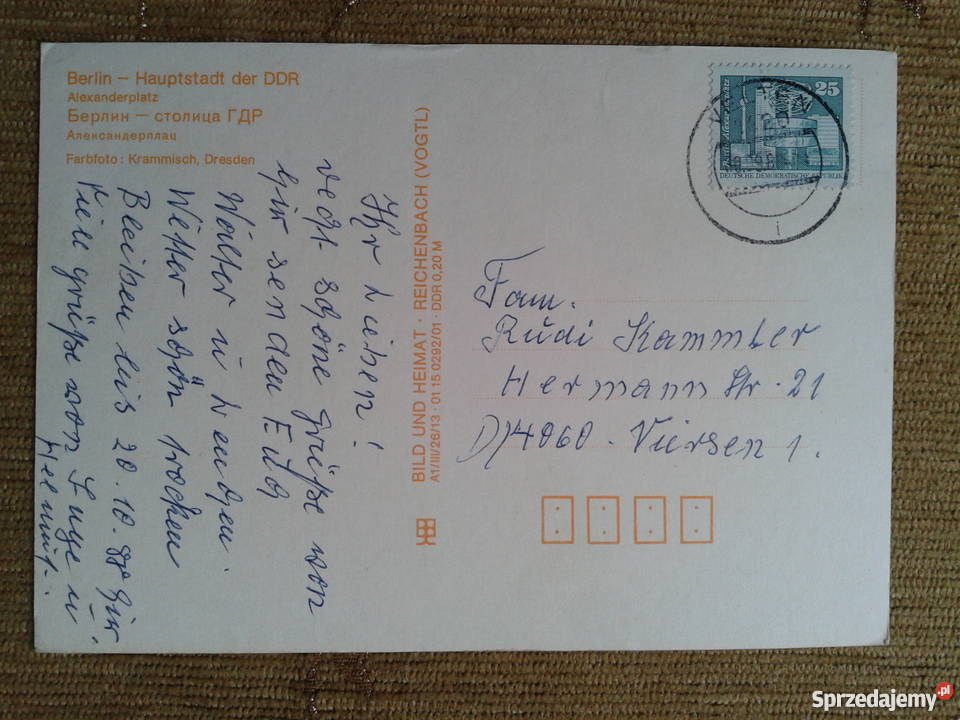 Berlin – Hauptstadt der DDR
Alexanderplatz
Берлин – столица ГДР
Александерплац
Farbfoto: Krammisch, Dresden
Ihr Lieben!
recht schöne Grüße von
hir senden Euch
Walter u
Wetter schön trocken
Bleiben bis 20.10. hir
Viele grüße von Inge u
Helmut.
BILD UND HEIMAT · REICHENBACH (VOGTL)
A1/III/26/13 · 01 15 0292/01 · DDR 0,20 M
25
DEUTSCHE DEMOKRATISCHE REPUBLIK
Fam.
Rudi Kammler
Hermann Str. 21
D)4060 - Viersen 1.
Sprzedajemy.pl